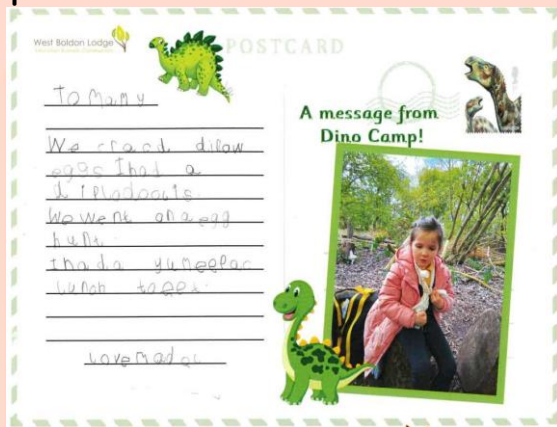 West Boldon Lodge
POSTCARD
To Mamy
We cracd dilow
eggs I had a
diplodocis.
We went on a egg
hunt.
I had a
lunch
love
A message from
Dino Camp!